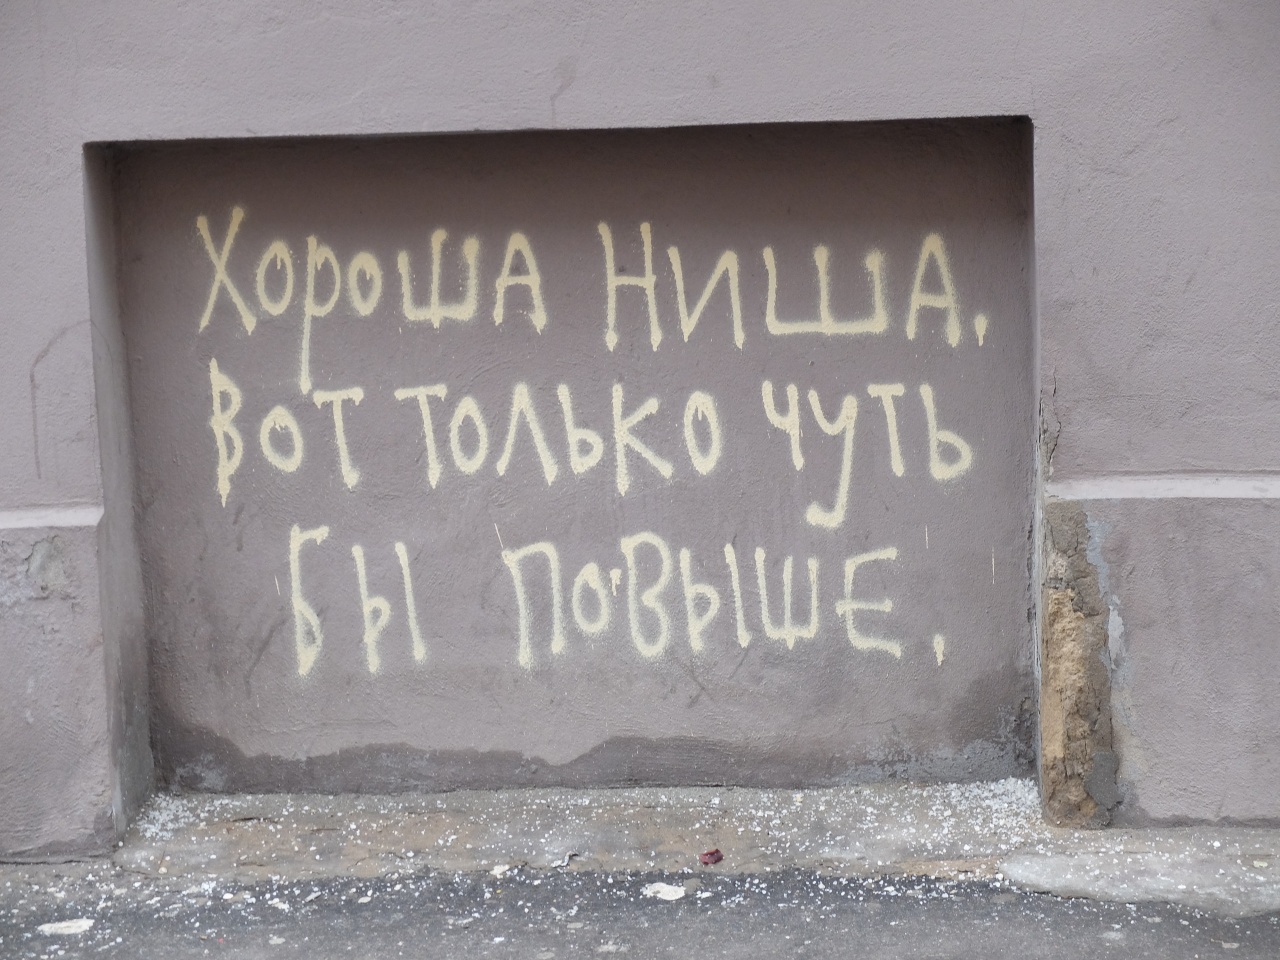 Хороша Ниша.
Вот только чуть
бы повыше.